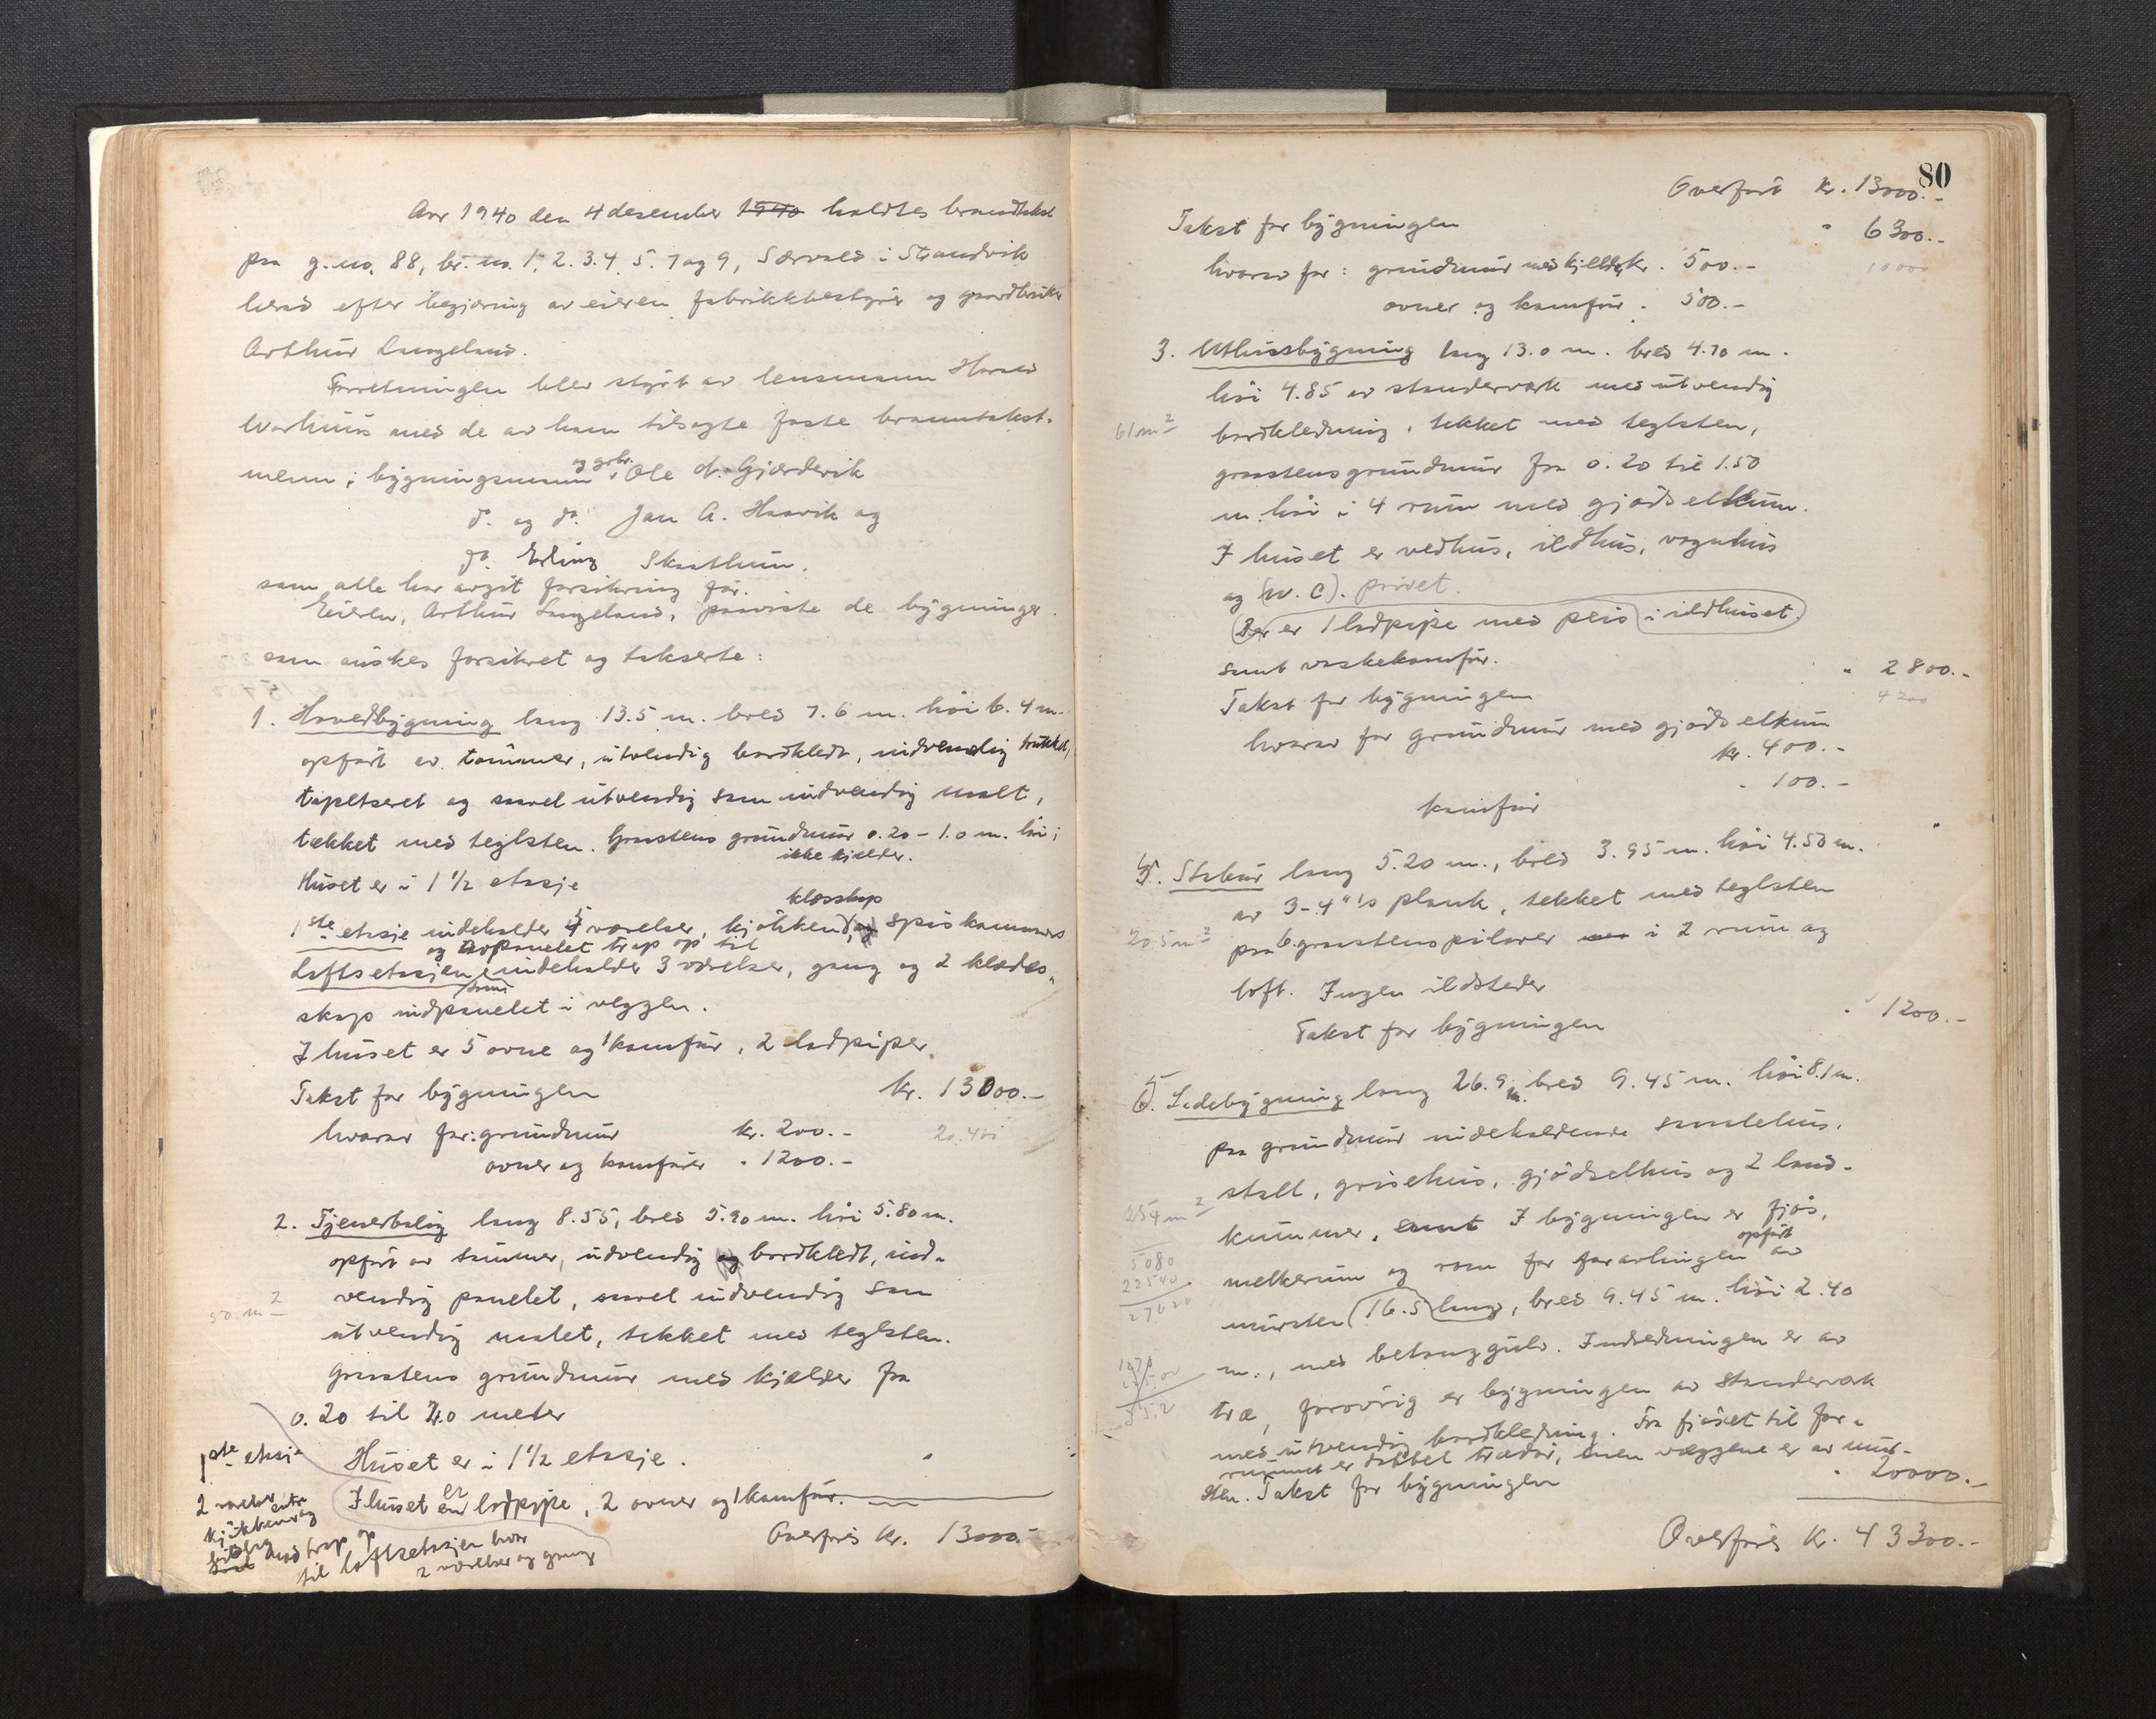 Aar 1940 den 4 desember 1940 holdtes brandtakst
paa g.no. 88, br. no. 1, 2. 3. 4. 5. 7 og 9, Særvold i Strandvik
herad efter begjæring av eieren fabrikkbestyrer og gaardbruker
Arthur Langeland.
Forretningen blev styrt av lensmann
med de av ham tilsagte faste branntakst-
menn; bygningsmann og gbr. Ole Gjærdevik
do. og do. Jan A. Haavik og
do. Erling Skaathun.
som alle har avgit forsikring før.
Eieren, Arthur Langeland, paaviste de bygninger
som ønskes forsikret og takserte:
1. Hovedbygning lang 13.5 m. bred 7.6 m. høi 6.4 m.
opført av tømmer, utvendig bordkledt, indvendig trukket,
tapetseret og saavel utvendig som indvendig malt,
tækket med teglsten. Graastens grundmur 0.20 - 1.0 m. høi;
ikke kjælder.
Huset er i 1 1/2 etasje
klæsskap
1ste etasje indeholder 5 værelser, kjøkken, og spiskammers
og panelet trap op til
Loftsetasjen som indeholder 3 værelser, gang og 2 klædes-
skap indpanelet i veggen.
I huset er 5 ovne og 1 komfur, 2 ladpiper
Takst for bygningen kr. 13000.-
hvorav for: grundmur kr. 200.- 20.400
ovner og komfurer " 1200.-
2. Tjenerbolig lang 8.55, bred 5.90 m. høi 5.80 m.
opført av tømmer, utvendig og bordkledt, ind-
vendig panelet, saavel indvendig som
50 m2
utvendig malet, tekket med teglsten.
Graastens grundmur med kjælder fra
0.20 til 2.0 meter
Huset er i 1 1/2 etasje.
1ste etasje
2 værelser
kjøkken og entre
med trap op
til loftsetasjen hvor
2 værelser og gang
I huset er en ladpipe, 2 ovner og 1 komfur.
Overføres kr. 13000.-
80
Overført kr. 13000.-
Takst for bygningen " 6300.-
hvorav for: grundmur med kjelder kr. 500.- 10000
ovner og komfur " 500.-
3. Uthusbygning lang 13.0 m. bred 4.70 m.
høi 4.85 av standerverk med utvendig
61 m2
bordkledning, tekket med teglsten,
graastensgrundmur fra 0.20 til 1.50
m. høi i 4 rum med gjødselkum.
I huset er vedhus, ildhus, vognhus
og (w.c). privet.
Der er 1 ladpipe med peis i ildhuset.
samt vaskekomfur.
Takst for bygningen " 2800.-
4200
hvorav for grundmur med gjødselkum
kr. 400.-
komfur " 100.-
4. Stabur lang 5.20 m., bred 3.95 m. høi 4.50 m.
av 3-4"s plank, tekket med teglsten
20.5 m2
paa 6 graastenspilarer i 2 rum og
loft. Ingen ildsteder
Takst for bygningen " 1200.-
5. Ladebygning lang 26.9 m. bred 9.45 m. høi 8.1 m.
paa grundmur indeholdende sauehus,
stall, grisehus, gjødselhus og 2 land-
254 m2
kummer, samt I bygningen er fjøs,
5080
22540
27620
melkerum og rom for foravlingen opført av
mursten 16.5 lang, bred 9.45 m. høi 2.40
m., med betonggulv. Indredningen er av
træ, forøvrig er bygningen av standerverk
med utvendig bordkledning. Fra fjøset til for-
rummet er dobbel trædør, men væggene er av mur-
sten. Takst for bygningen " 20000.-
Overføres kr. 43300.-